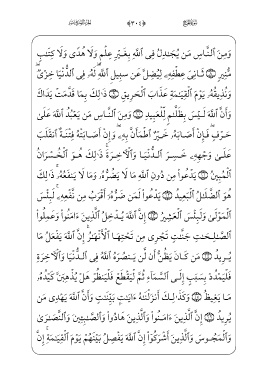 وَمِنَ ٱلنَّاسِ مَن يُجَـٰدِلُ فِى ٱللَّهِ بِغَيْرِ عِلْمٍ وَلَا هُدًى وَلَا كِتَـٰبٍ
مُّنِيرٍ ۝ ثَانِىَ عِطْفِهِۦ لِيُضِلَّ عَن سَبِيلِ ٱللَّهِ لَهُۥ فِى ٱلدُّنْيَا خِزْىٌ
وَنُذِيقُهُۥ يَوْمَ ٱلْقِيَـٰمَةِ عَذَابَ ٱلْحَرِيقِ ۝ ذَٰلِكَ بِمَا قَدَّمَتْ يَدَاكَ
وَأَنَّ ٱللَّهَ لَيْسَ بِظَلَّـٰمٍ لِّلْعَبِيدِ ۝ وَمِنَ ٱلنَّاسِ مَن يَعْبُدُ ٱللَّهَ عَلَىٰ
حَرْفٍ فَإِنْ أَصَابَهُۥ خَيْرٌ ٱطْمَأَنَّ بِهِۦ وَإِنْ أَصَابَتْهُ فِتْنَةٌ ٱنقَلَبَ
عَلَىٰ وَجْهِهِۦ خَسِرَ ٱلدُّنْيَا وَٱلْـَٔاخِرَةَ ذَٰلِكَ هُوَ ٱلْخُسْرَانُ
ٱلْمُبِينُ ۝ يَدْعُوا۟ مِن دُونِ ٱللَّهِ مَا لَا يَضُرُّهُۥ وَمَا لَا يَنفَعُهُۥ ذَٰلِكَ
هُوَ ٱلضَّلَـٰلُ ٱلْبَعِيدُ ۝ يَدْعُوا۟ لَمَن ضَرُّهُۥٓ أَقْرَبُ مِن نَّفْعِهِۦ لَبِئْسَ
ٱلْمَوْلَىٰ وَلَبِئْسَ ٱلْعَشِيرُ ۝ إِنَّ ٱللَّهَ يُدْخِلُ ٱلَّذِينَ ءَامَنُوا۟ وَعَمِلُوا۟
ٱلصَّـٰلِحَـٰتِ جَنَّـٰتٍ تَجْرِى مِن تَحْتِهَا ٱلْأَنْهَـٰرُ إِنَّ ٱللَّهَ يَفْعَلُ مَا
يُرِيدُ ۝ مَن كَانَ يَظُنُّ أَن لَّن يَنصُرَهُ ٱللَّهُ فِى ٱلدُّنْيَا وَٱلْـَٔاخِرَةِ
فَلْيَمْدُدْ بِسَبَبٍ إِلَى ٱلسَّمَآءِ ثُمَّ لْيَقْطَعْ فَلْيَنظُرْ هَلْ يُذْهِبَنَّ كَيْدُهُۥ
مَا يَغِيظُ ۝ وَكَذَٰلِكَ أَنزَلْنَـٰهُ ءَايَـٰتٍۭ بَيِّنَـٰتٍ وَأَنَّ ٱللَّهَ يَهْدِى مَن
يُرِيدُ ۝ إِنَّ ٱلَّذِينَ ءَامَنُوا۟ وَٱلَّذِينَ هَادُوا۟ وَٱلصَّـٰبِـِٔينَ وَٱلنَّصَـٰرَىٰ
وَٱلْمَجُوسَ وَٱلَّذِينَ أَشْرَكُوٓا۟ إِنَّ ٱللَّهَ يَفْصِلُ بَيْنَهُمْ يَوْمَ ٱلْقِيَـٰمَةِ إِنَّ